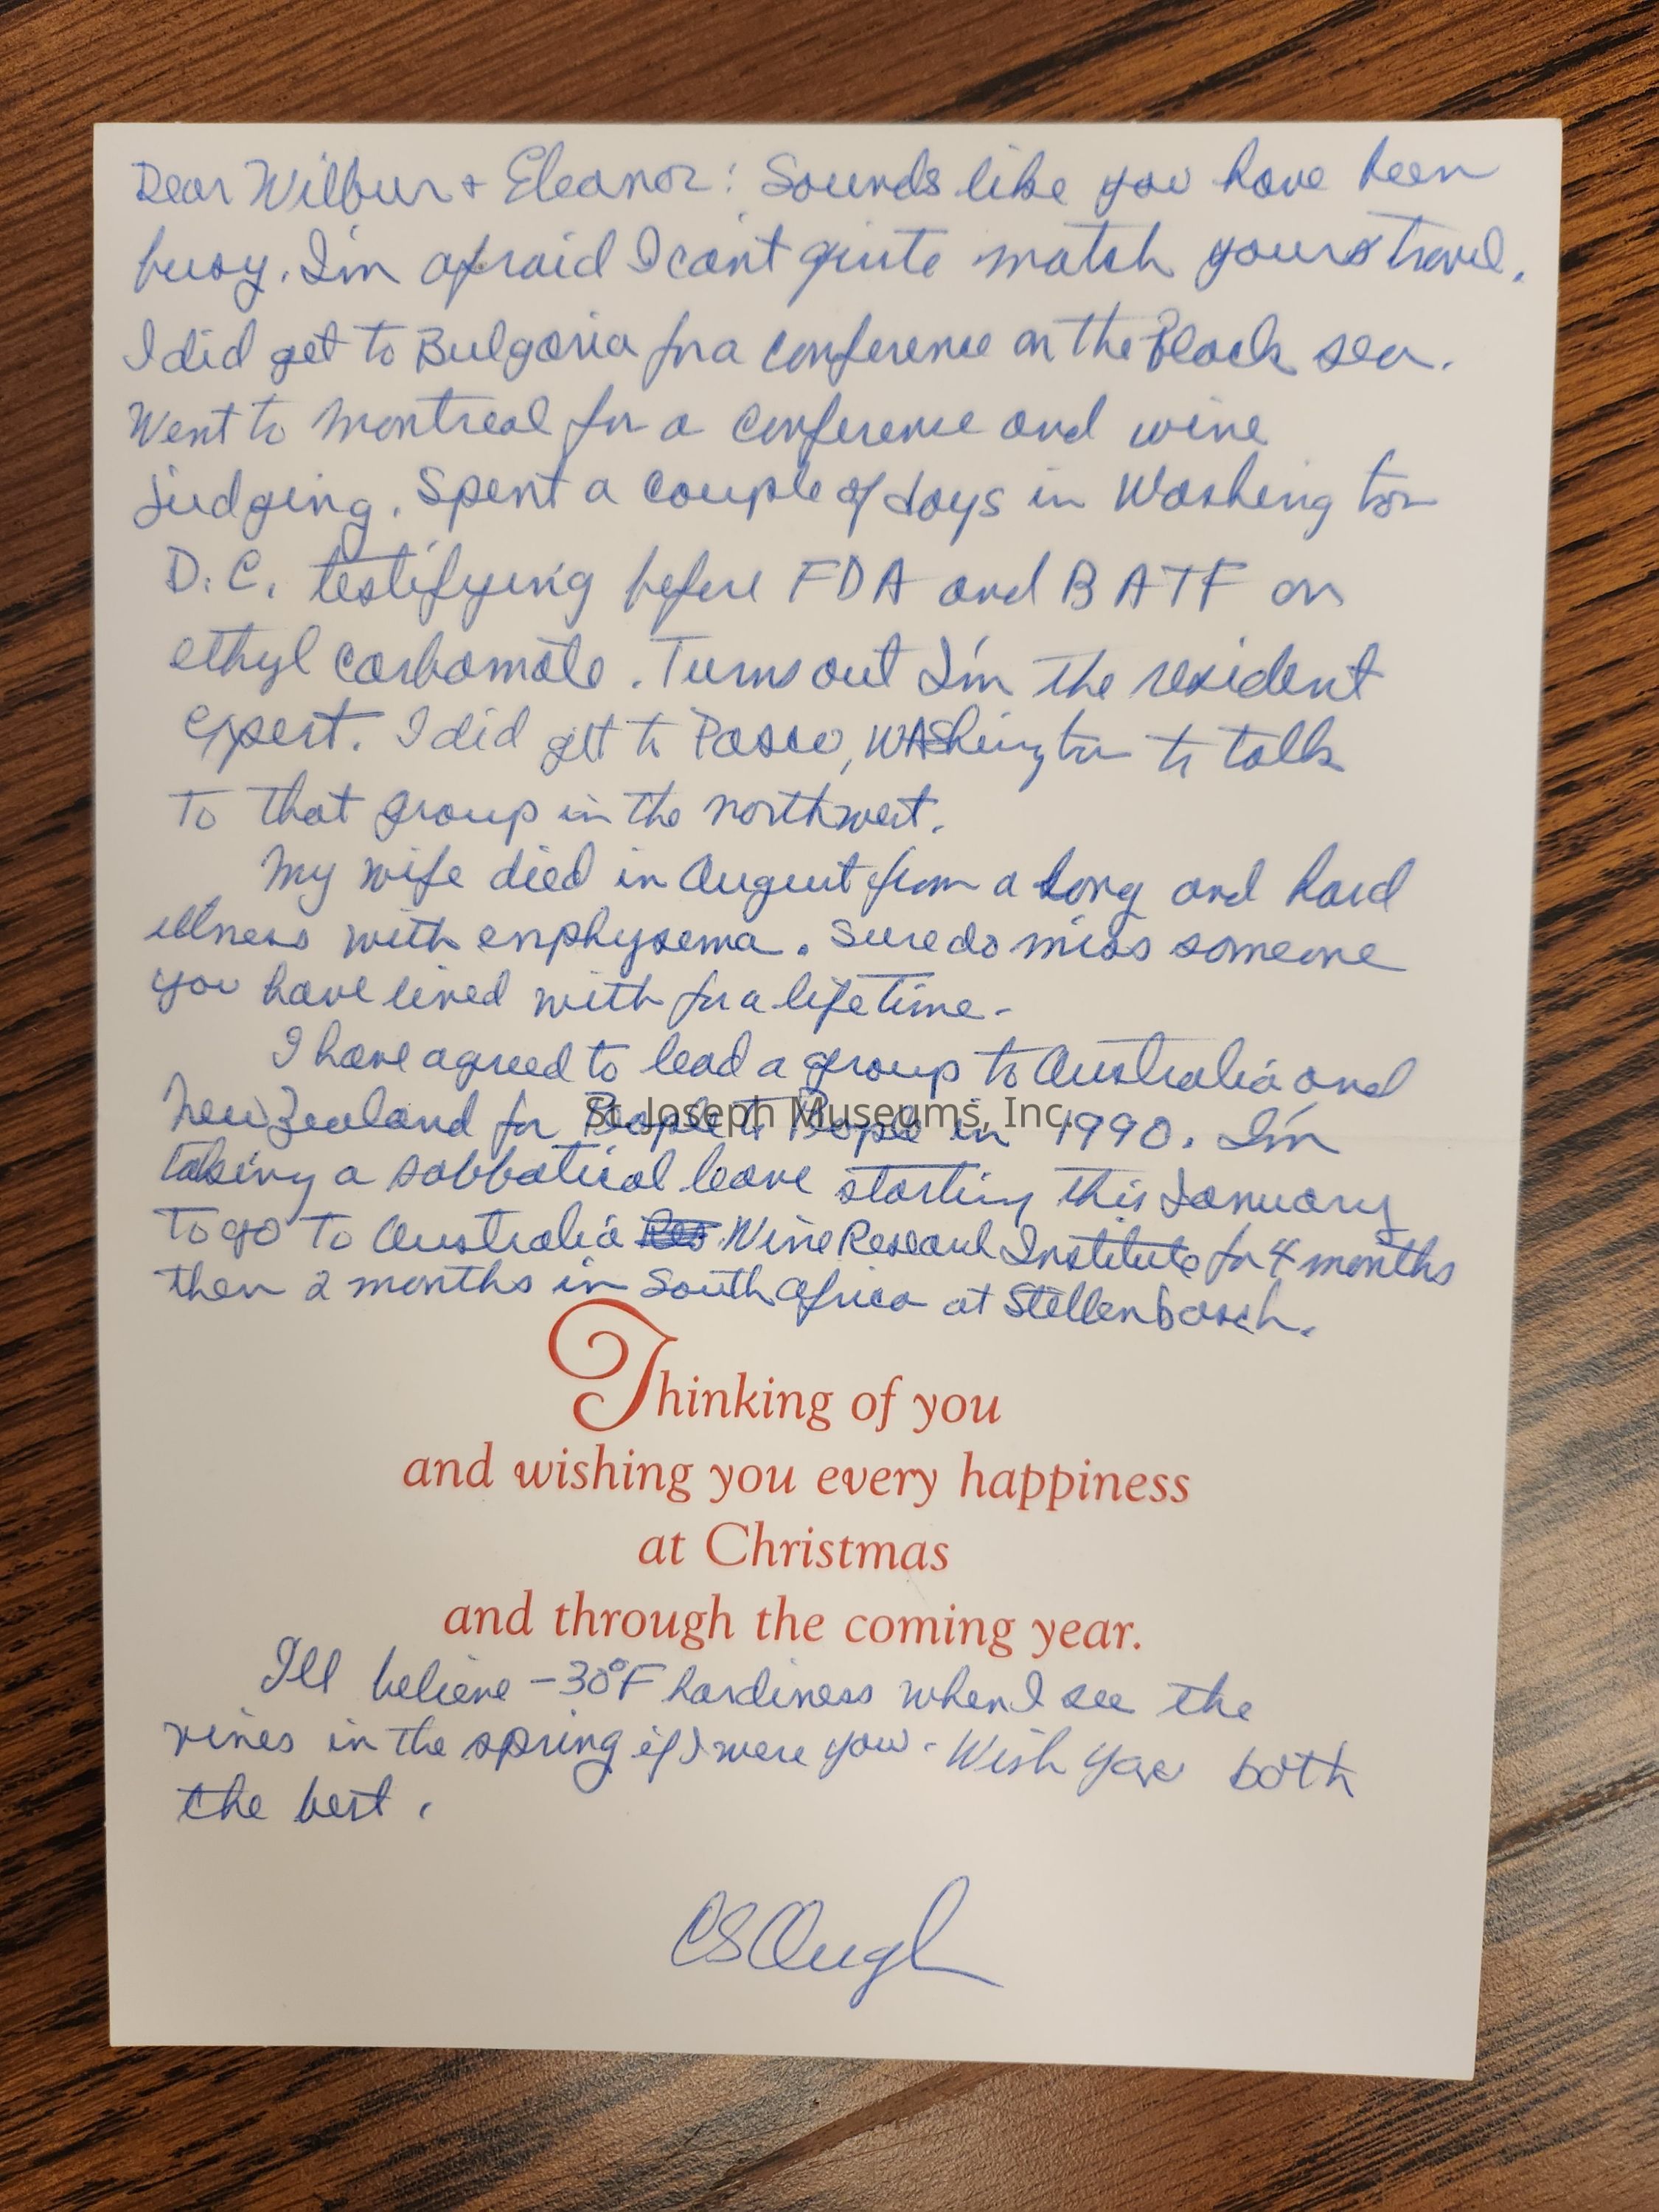 Dear Wilbur + Eleanor: Sounds like you have been
busy. I'm afraid I can't quite match yours travel.
I did get to Bulgaria for a conference on the Black sea.
Went to Montreal for a conference and wine
judging. Spent a couple of days in Washington
D.C. testifying before FDA and BATF on
ethyl carbamate. Turns out I'm the resident
expert. I did get to Pasco, WAShington to talk
to that group in the northwest.
My wife died in August from a long and hard
illness with enphysema. Sure do miss someone
you have lived with for a lifetime.
I have agreed to lead a group to Australia and
New Zealand for People to People in 1990. I'm
St. Joseph Museums, Inc.
taking a sabbatical leave starting this January
to go to Australia Wine Research Institute for 4 months
then 2 months in South Africa at Stellenbosch.
Thinking of you
and wishing you every happiness
at Christmas
and through the coming year.
I'll believe -30°F hardiness when I see the
vines in the spring if I were you. Wish you both
the best.
CS Ough